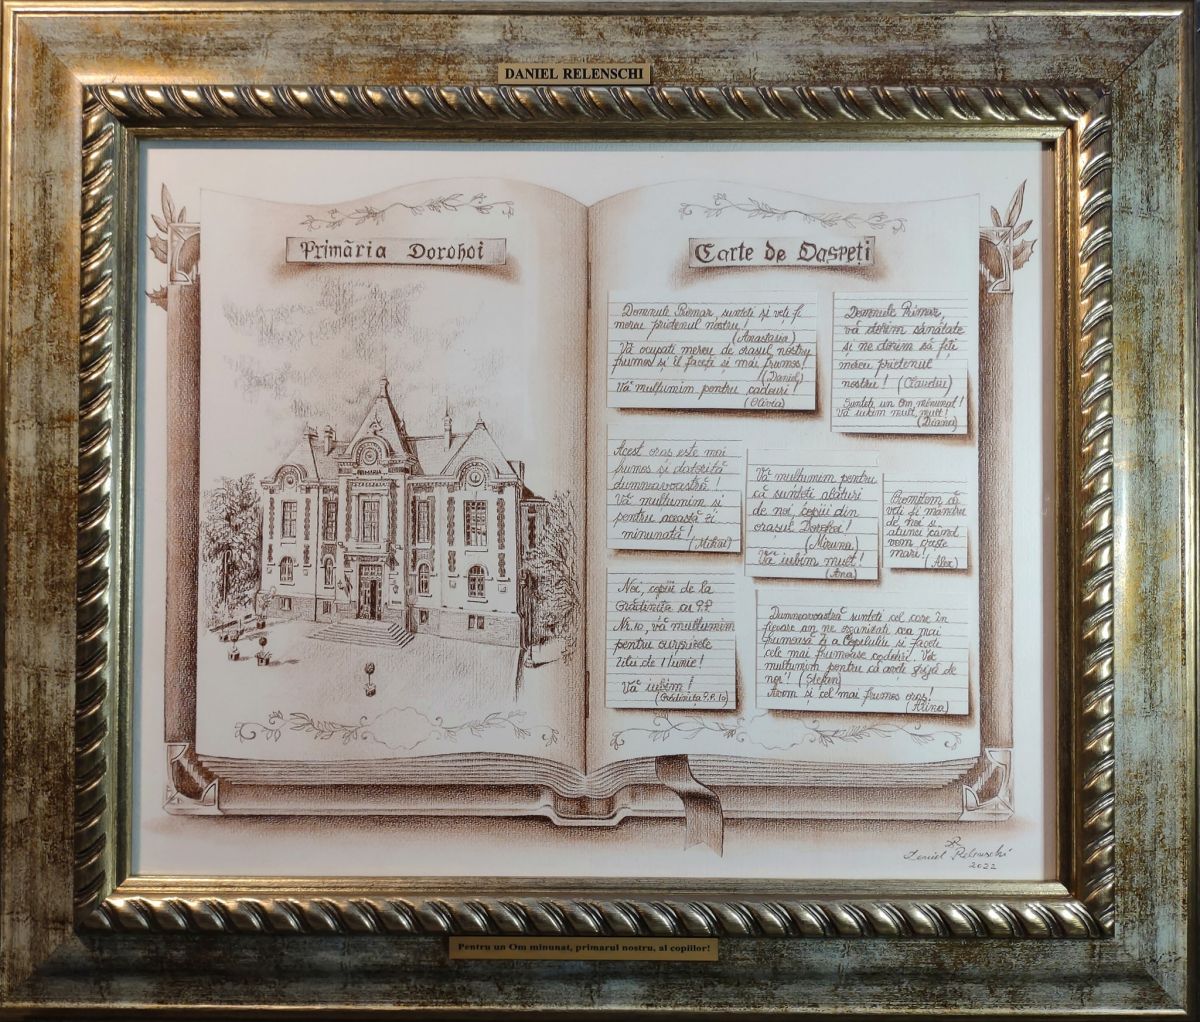 DANIEL RELENSCHI
Primăria Dorohoi
PRIMARIA
Carte de Oaspeți
Domnule Primar, sunteți și veți fi
mereu prietenul nostru!
(Anastasia)
Vă ocupați mereu de orașul nostru
frumos și îl faceți și mai frumos!
(Daniel)
Vă mulțumim pentru cadouri!
(Olivia)
Domnule Primar,
vă dorim sănătate
și ne dorim să fiți
mereu prietenul
nostru! (Claudiu)
Sunteți un Om minunat!
Vă iubim mult, mult!
(Diana)
Acest oraș este mai
frumos și datorită
dumneavoastră!
Vă mulțumim și
pentru această zi
minunată!
(Mihai)
Vă mulțumim pentru
că sunteți alături
de noi, copiii din
orașul Dorohoi!
(Miruna)
Vă iubim mult!
(Ana)
Promitem că
veți fi mândru
de noi și
atunci când
vom crește
mari!
(Alex)
Noi, copiii de la
Grădinița cu P.P.
Nr. 10, vă mulțumim
pentru surprizele
zilei de 1 Iunie!
Vă iubim!
(Grădinița P.P. 10)
Dumneavoastră sunteți cel care în
fiecare an ne organizați cea mai
frumoasă zi a Copilului și faceți
cele mai frumoase cadouri. Vă
mulțumim pentru că aveți grijă de
noi! (Ștefan)
Avem și cel mai frumos oraș!
(Alina)
Daniel Relenschi
2022
Pentru un Om minunat, primarul nostru, al copiilor!